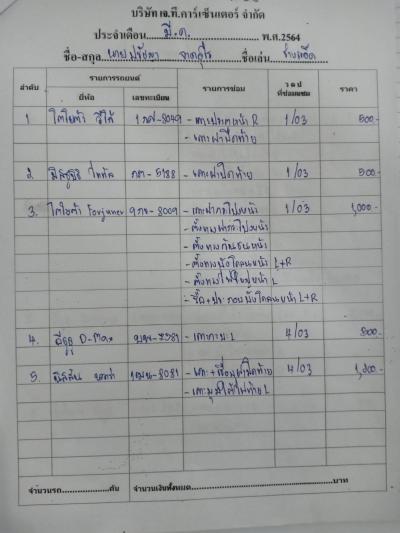 บริษัท เจ.ที.คาร์เซ็นเตอร์ จำกัด
ประจำเดือน มี.ค. พ.ศ.2564
ชื่อ-สกุล นาย ชื่อเล่น ช่าง
ลำดับ รายการรถยนต์ รายการซ่อม ว ด ป ที่ซ่อมเสร็จ ราคา
ยี่ห้อ เลขทะเบียน
1 โตโยต้า วีโก้ -8049 - เคาะ หน้า R 1/03 500.-
- เคาะฝาปิดท้าย
2 มิตซูบิชิ ไททัล -5188 - เคาะฝาปิดท้าย 1/03 500.-
3. โตโยต้า Forjuner -8009 - เคาะฝากระโปรงหน้า 1/03 1,000.-
- ตั้งทางฝากระโปรงหน้า
- ตั้งทางกันชนหน้า
- ตั้งทางบังโคลนหน้า L+R
- ตั้งทางไฟใหญ่หน้า L
- รื้อ+ประกอบบังโคลนหน้า L+R
4. อีซูซุ D-Max - เคาะ L 4/03 500.-
5. นิสสัน -8081 - เคาะ+เชื่อม ฝาปิดท้าย 4/03
- เคาะมุมใต้ไฟท้าย L
จำนวนรถ คัน จำนวนเงินทั้งหมด บาท